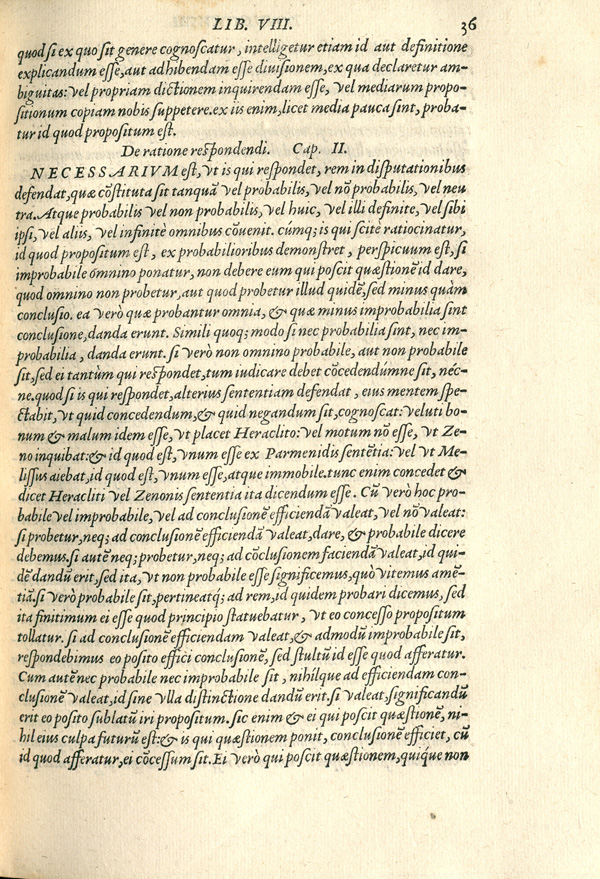 LIB. VIII. 36
quod si ex quo sit genere cognoscatur, intelligetur etiam id aut definitione
explicandum esse, aut adhibendam esse diuisionem, ex qua declaretur am-
biguitas: vel propriam dictionem inquirendam esse, vel mediarum propo-
sitionum copiam nobis suppetere. ex iis enim, licet media pauca sint, proba-
tur id quod propositum est.
De ratione respondendi. Cap. II.
NECESSARIVM est, vt is qui respondet, rem in disputationibus
defendat, quæ cõstituta sit tanquã vel probabilis, vel nõ probabilis, vel neu
tra. Atque probabilis vel non probabilis, vel huic, vel illi definite, vel sibi
ipsi, vel aliis, vel infinite omnibus cõuenit. cúmq; is qui scite ratiocinatur,
id quod propositum est, ex probabilioribus demonstret, perspicuum est, si
improbabile omnino ponatur, non debere eum qui poscit quæstionẽ id dare,
quod omnino non probetur, aut quod probetur illud quidẽ, sed minus quàm
conclusio. ea verò quæ probantur omnia, & quæ minus improbabilia sint
conclusione, danda erunt. Simili quoq; modo si nec probabilia sint, nec im-
probabilia, danda erunt. si verò non omnino probabile, aut non probabile
sit, sed ei tantùm qui respondet, tum iudicare debet cõcedendúmne sit, néc-
ne. quod si is qui respondet, alterius sententiam defendat, eius mentem spe-
ctabit, vt quid concedendum, & quid negandum sit, cognoscat: veluti bo-
num & malum idem esse, vt placet Heraclito: vel motum nõ esse, vt Ze-
no inquibat: & id quod est, vnum esse ex Parmenidis sentẽtia: vel vt Me-
lissus aiebat, id quod est, vnum esse, atque immobile. tunc enim concedet &
dicet Heracliti vel Zenonis sententia ita dicendum esse. Cũ verò hoc pro-
babile vel improbabile, vel ad conclusionẽ efficiendã valeat, vel nõ valeat:
si probetur, neq; ad conclusionẽ efficiendã valeat, dare, & probabile dicere
debemus. si autẽ neq; probetur, neq; ad cõclusionem faciendã valeat, id qui-
dẽ dandũ erit, sed ita, vt non probabile esse significemus, quò vitemus amẽ-
tiã. si verò probabile sit, pertineatq; ad rem, id quidem probari dicemus, sed
ita finitimum ei esse quod principio statuebatur, vt eo concesso propositum
tollatur. si ad conclusionẽ efficiendam valeat, & admodũ improbabile sit,
respondebimus eo posito effici conclusionẽ, sed stultũ id esse quod afferatur.
Cum autẽ nec probabile nec improbabile sit, nihilque ad efficiendam con-
clusionẽ valeat, id sine vlla distinctione dandũ erit. si valeat, significandũ
erit eo posito sublatũ iri propositum. sic enim & ei qui poscit quæstionẽ, ni-
hil eius culpa futurũ est: & is qui quæstionem ponit, conclusionẽ efficiet, cũ
id quod afferatur, ei cõcessum sit. Ei verò qui poscit quæstionem, quíque non